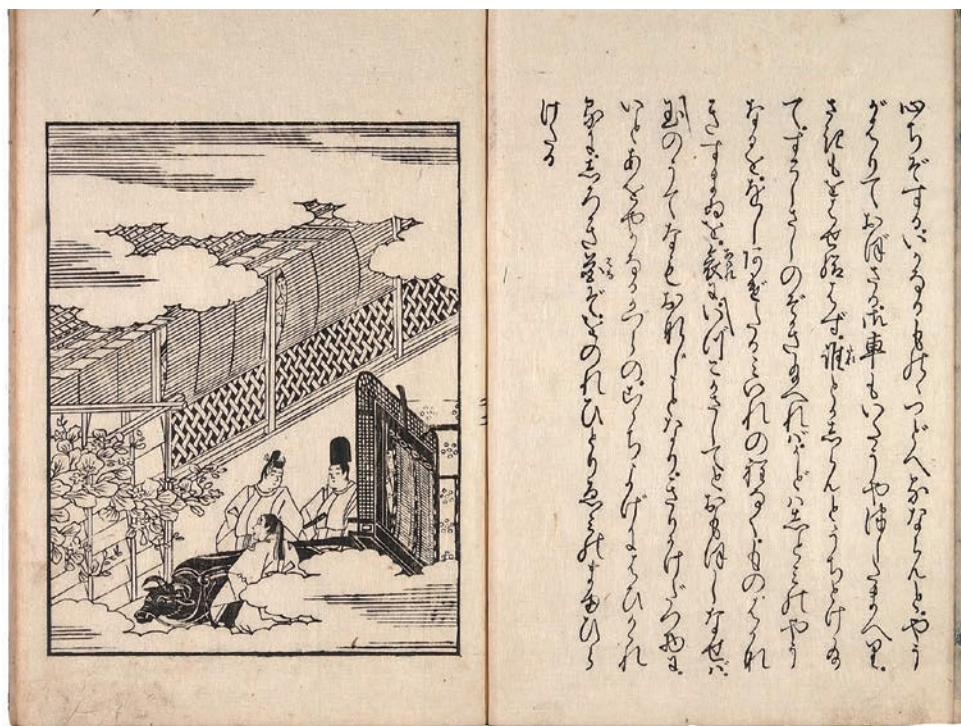 心ちぞするいかなるものゝつどへるならんとやう
がはりておぼさる御車もいたうやつしたまへり。
さきもをはせ給はず。誰とかしらんとうちとけ給
て。すこしさしのぞきたまへれば。かどはしとみのやう
なるををしあげたるみいれの程なくものはかな
きすまゐを。哀にいづこかさしてとおもほしなせば。
玉のうてなもおなじことなり。きりかけだつ物に。
いとあをやかなるかづらの心ちよげにはひかゝれ
るにしろき花ぞをのれひとりゑみのまゆひら
けたる